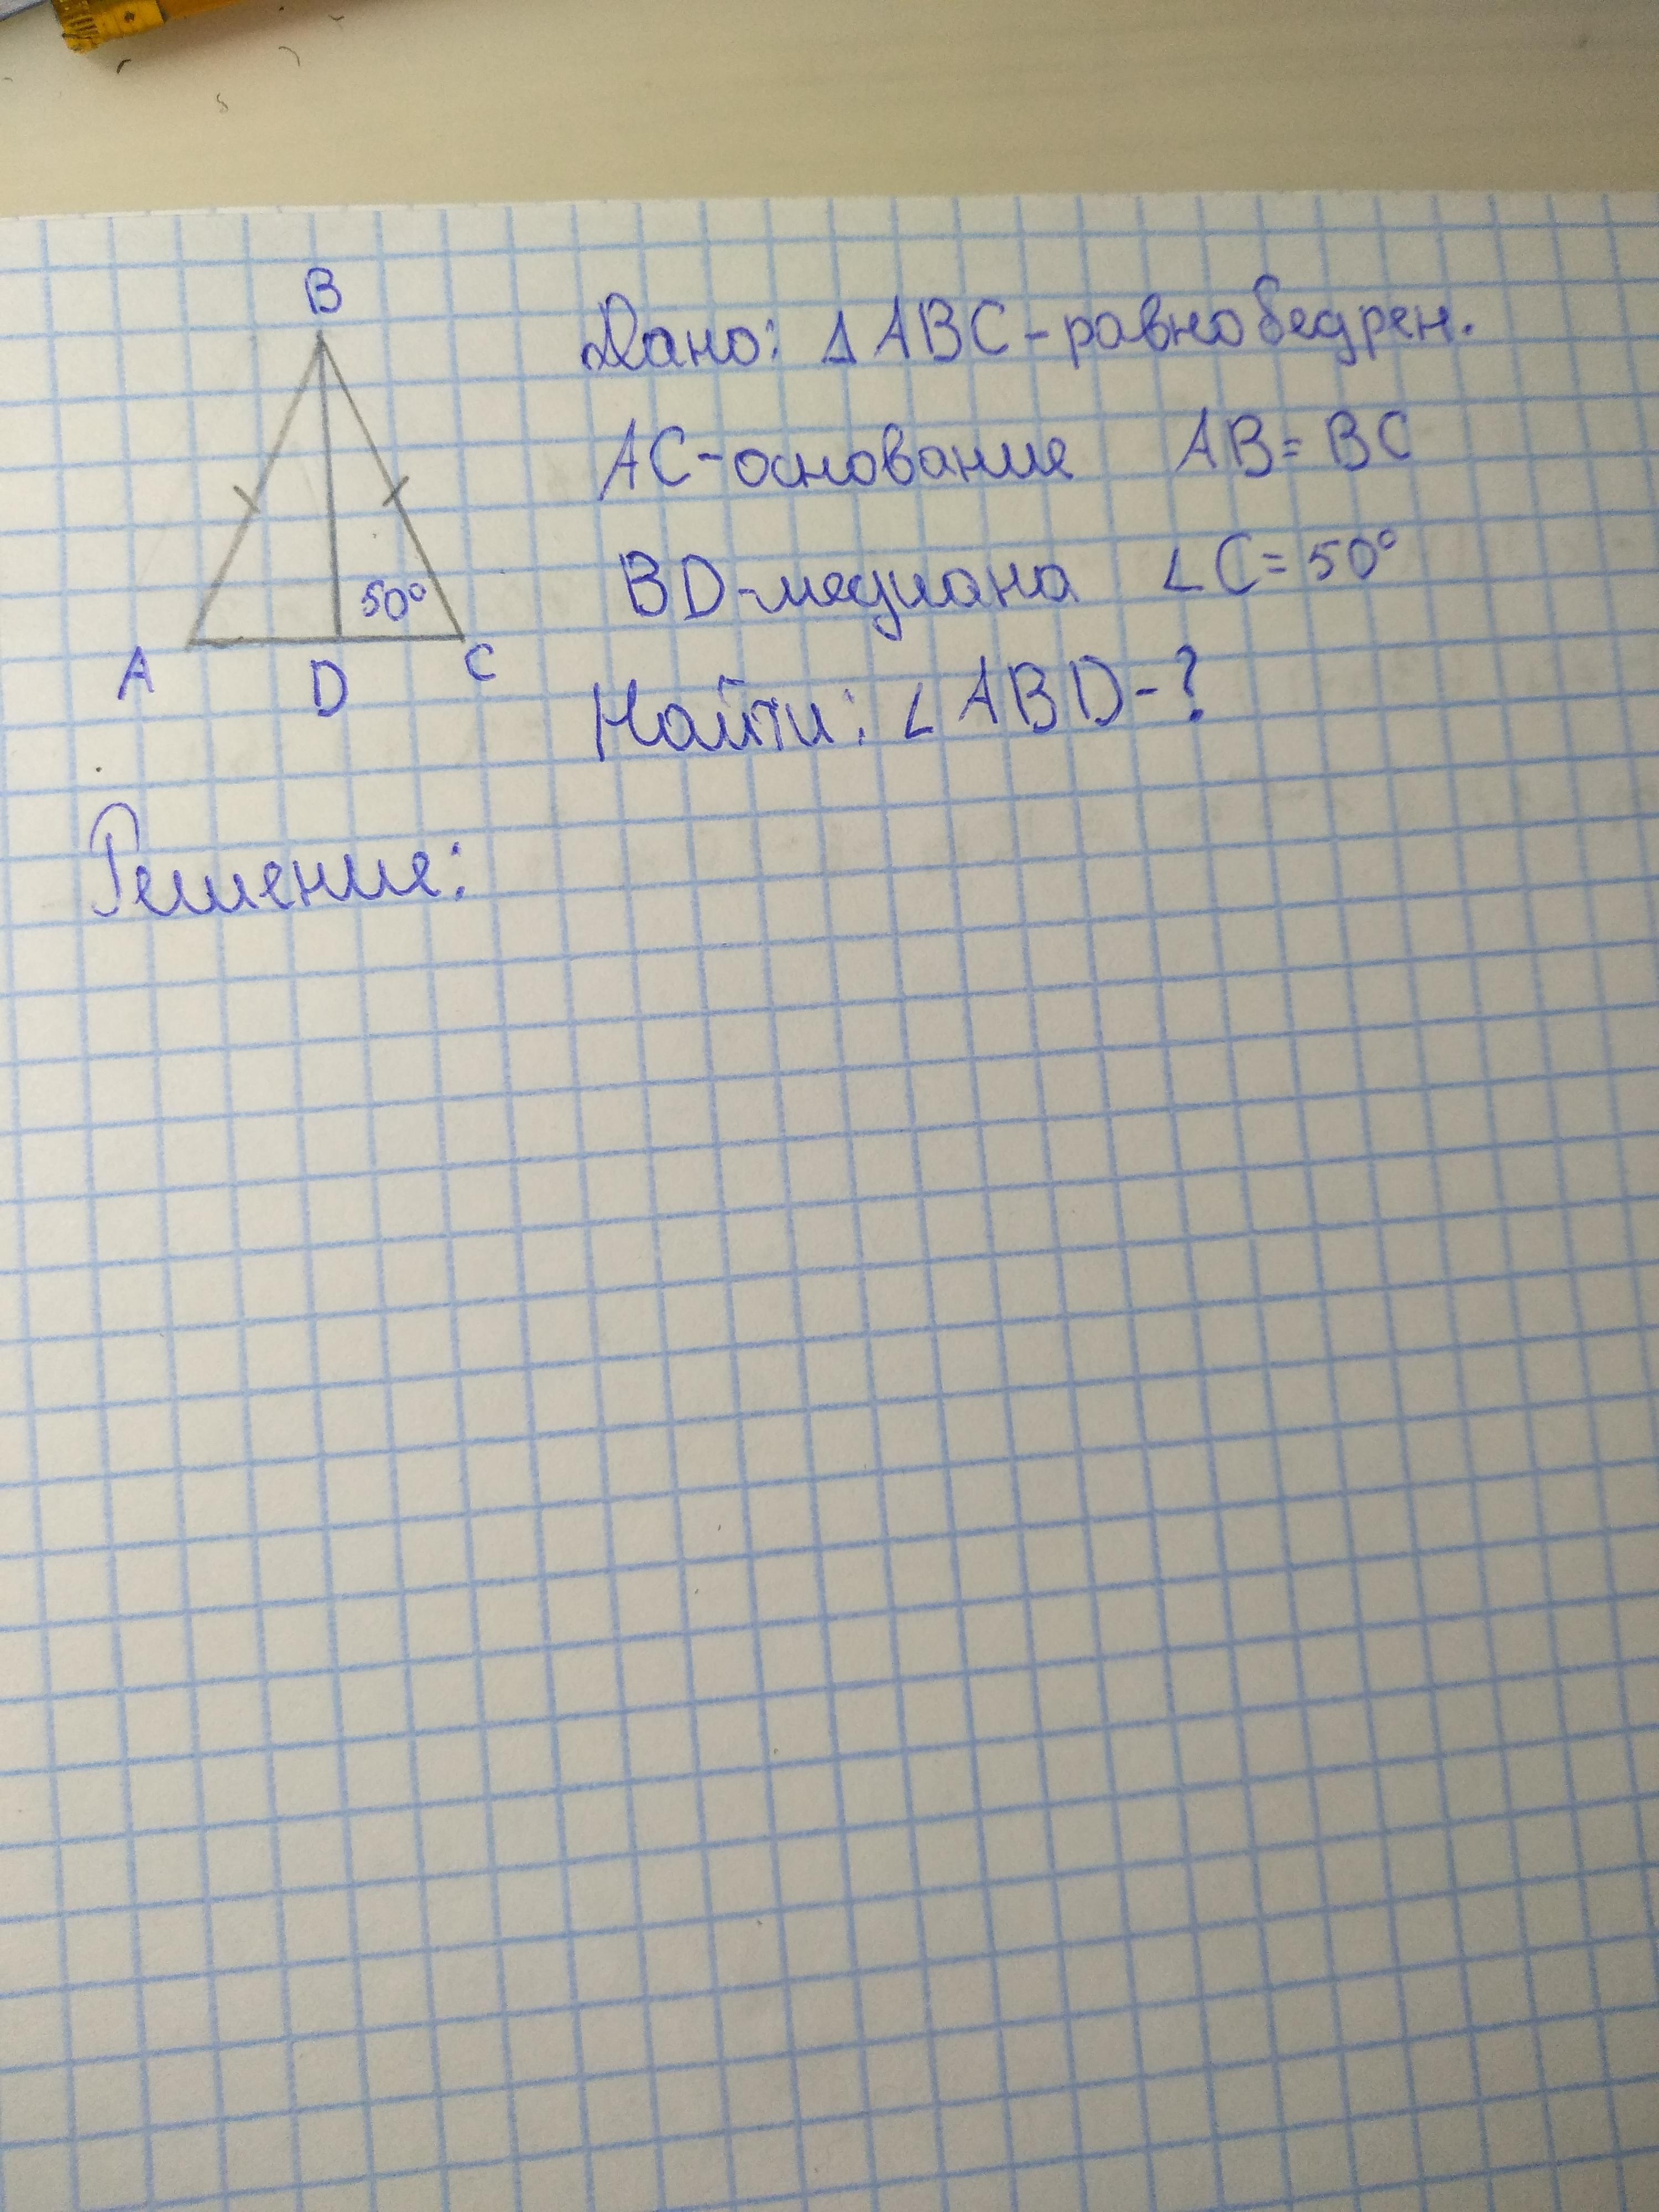 B
Дано: △ABC-равнобедрен.
AC-основание AB=BC
BD-медиана ∠C=50°
50°
A D C
Найти: ∠ABD-?
Решение: